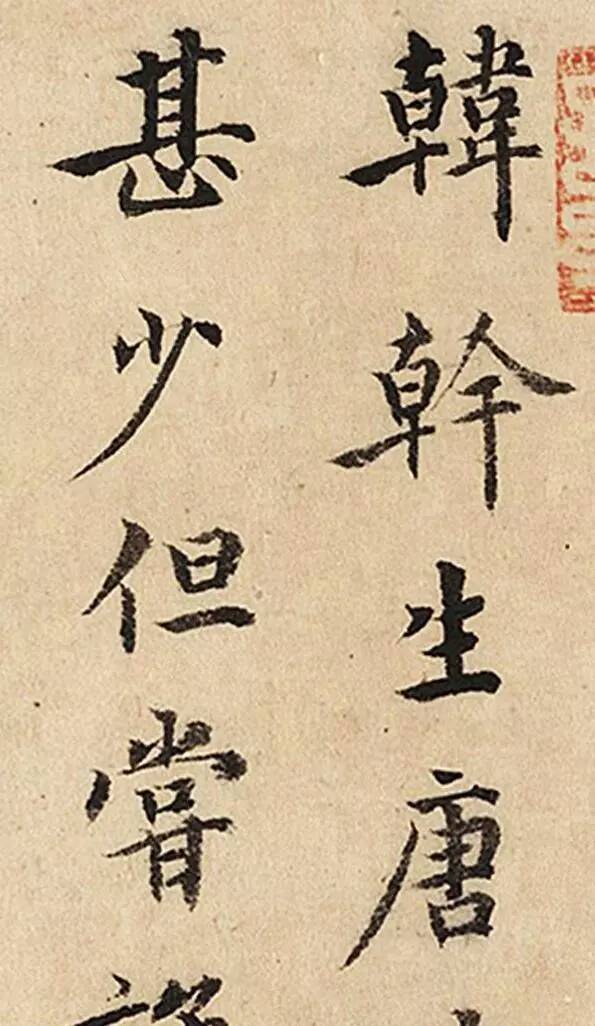 韓幹生唐
甚少但嘗